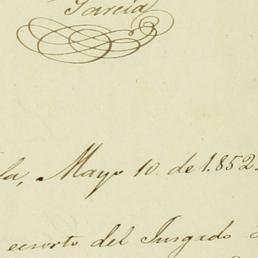 García
la, Mayo 10. de 1.852.
ecsorto del Jusgado